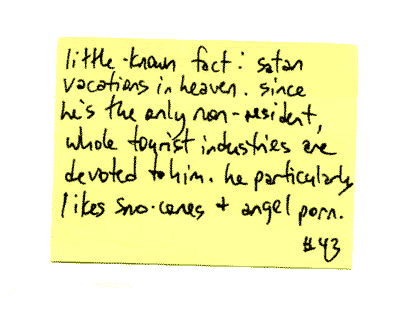 little-known fact: satan
vacations in heaven. since
he's the only non-resident,
whole tourist industries are
devoted to him. he particularly
likes sno-cones + angel porn.
#43